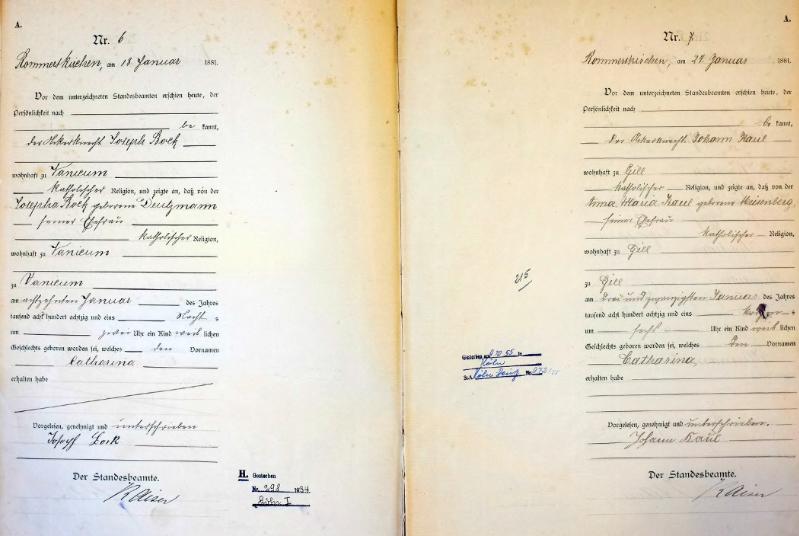 A.
Nr. 6
Rommerskirchen, am 18 Januar 1881.
Vor dem unterzeichneten Standesbeamten erschien heute, der
Persönlichkeit nach
be kannt,
der Ackerknecht Joseph Bock
wohnhaft zu Vanicum
katholischer Religion, und zeigte an, daß von der
Josepha Bock geborene Deutzmann
seiner Ehefrau
katholischer Religion,
wohnhaft zu Vanicum
zu Vanicum
am achtzehnten Januar des Jahres
tausend acht hundert achtzig und eins Nacht =
um zwei Uhr ein Kind weib lichen
Geschlechts geboren worden sei, welches den Vornamen
Catharina
erhalten habe
Vorgelesen, genehmigt und unterschrieben
Joseph Bock
Der Standesbeamte.
Kaiser
H. Gestorben
Nr. 298 1934
Köln I
A.
Nr. 7
Rommerskirchen, am 27. Januar 1881.
Vor dem unterzeichneten Standesbeamten erschien heute, der
Persönlichkeit nach
be kannt,
der Ackerknecht Johann Kaul
wohnhaft zu Gill
katholischer Religion, und zeigte an, daß von der
Anna Maria Kaul geborene
seiner Ehefrau
katholischer Religion,
wohnhaft zu Gill
zu Gill
am drei und zwanzigsten Januar des Jahres
tausend acht hundert achtzig und eins
um sechs Uhr ein Kind weib lichen
Geschlechts geboren worden sei, welches den Vornamen
Catharina
erhalten habe
Vorgelesen, genehmigt und unterschrieben.
Johann Kaul
Der Standesbeamte.
Kaiser
Gestorben am
Köln
Köln Deutz Nr.